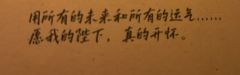 用所有的未来和所有的运气……
愿我的陛下，真的开怀。